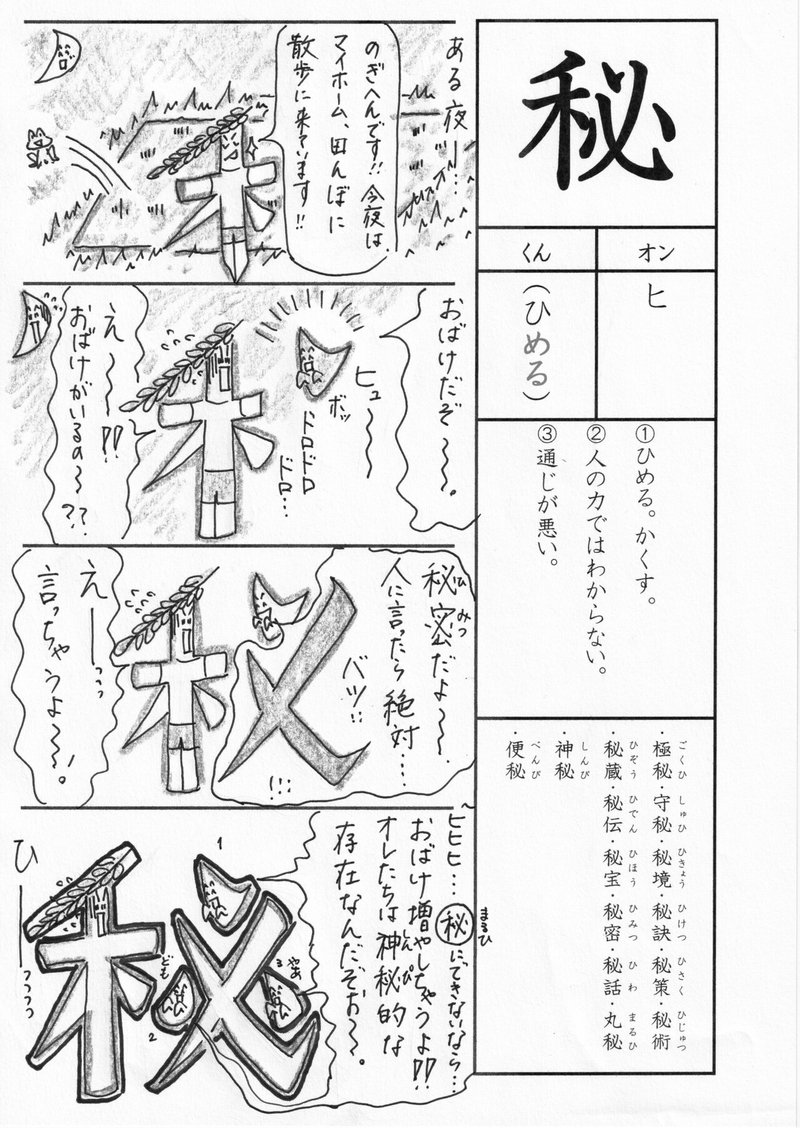 秘
オン
くん
ヒ
（ひめる）
①ひめる。かくす。
②人の力ではわからない。
③通じが悪い。
・極秘・守秘・秘境・秘訣・秘策・秘術
ごくひ しゅひ ひきょう ひけつ ひさく ひじゅつ
秘蔵・秘伝・秘宝・秘密・秘話・丸秘
ひぞう ひでん ひほう ひみつ ひわ まるひ
・神秘
しんぴ
・便秘
べんぴ
ある夜……
のぎへんです!!今夜は、
マイホーム、田んぼに
散歩に来ています!!
おばけだぞ〜〜。
ヒュ〜〜
ボッ
ドロドロ
ドロ…
え〜〜!!
おばけがいるの〜〜??
秘密だよ〜〜。
ひ みつ
人に言ったら絶対……
バツ…
(!…
えーーっっ
言っちゃうよ〜〜!。
ヒヒヒ……秘にできないなら……
まるひ
おばけ増やしちゃうよ!!
オレたちは神秘的な
しんぴ
存在なんだぞぉ〜〜。
1
2
ども
3
やあ
ひーーーっっっっ